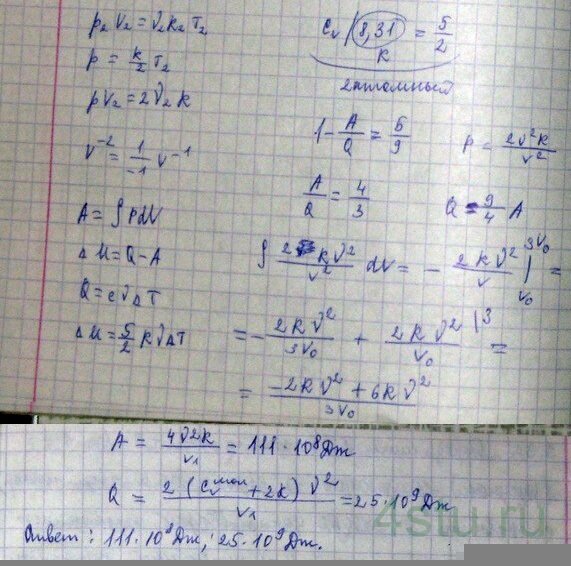 p₂ V₂ = ν₂ R₂ T₂
p = k/2 T₂
pV₂ = 2ν₂ k
V⁻² = 1/-1 V⁻¹
A = ∫ PdV
ΔU = Q - A
Q = cνΔT
ΔU = 5/2 RνΔT
cᵥ / 8,31 = 5/2
R
2атомный
1 - A/Q = 5/9
A/Q = 4/3
p = 2ν²k/V²
Q = 9/4 A
∫ 2kν²/V² dV = - 2kν²/V |³ⱽ⁰ᵥ₀ =
= - 2kν²/3V₀ + 2kν²/V₀ |³ =
= -2kν² + 6kν² / 3V₀
A = 4ν²k/V₁ = 111·10⁸ Дж
Q = 2(cᵥᵐᵒˡ + 2k) ν² / V₁ = 25·10⁹ Дж
Ответ: 111·10⁸ Дж; 25·10⁹ Дж.
4stu.ru